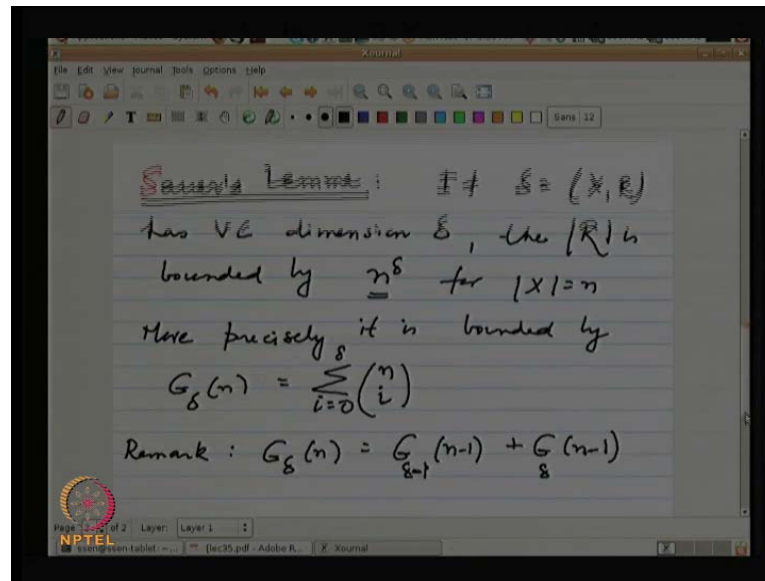 Xournal
File Edit View Journal Tools Options Help
Sans 12
Sauer's Lemma : If S = (X, R)
has VC dimension δ, the |R| is
bounded by n^δ for |X| = n
More precisely it is bounded by
G_δ(n) = Σ_{i=0}^{δ} (n i)
Remark : G_δ(n) = G_{δ-1}(n-1) + G_δ(n-1)
Page 2 of 2 Layer: Layer 1
NPTEL
ssen@ssen-tablet: ~... [lec35.pdf - Adobe R... Xournal